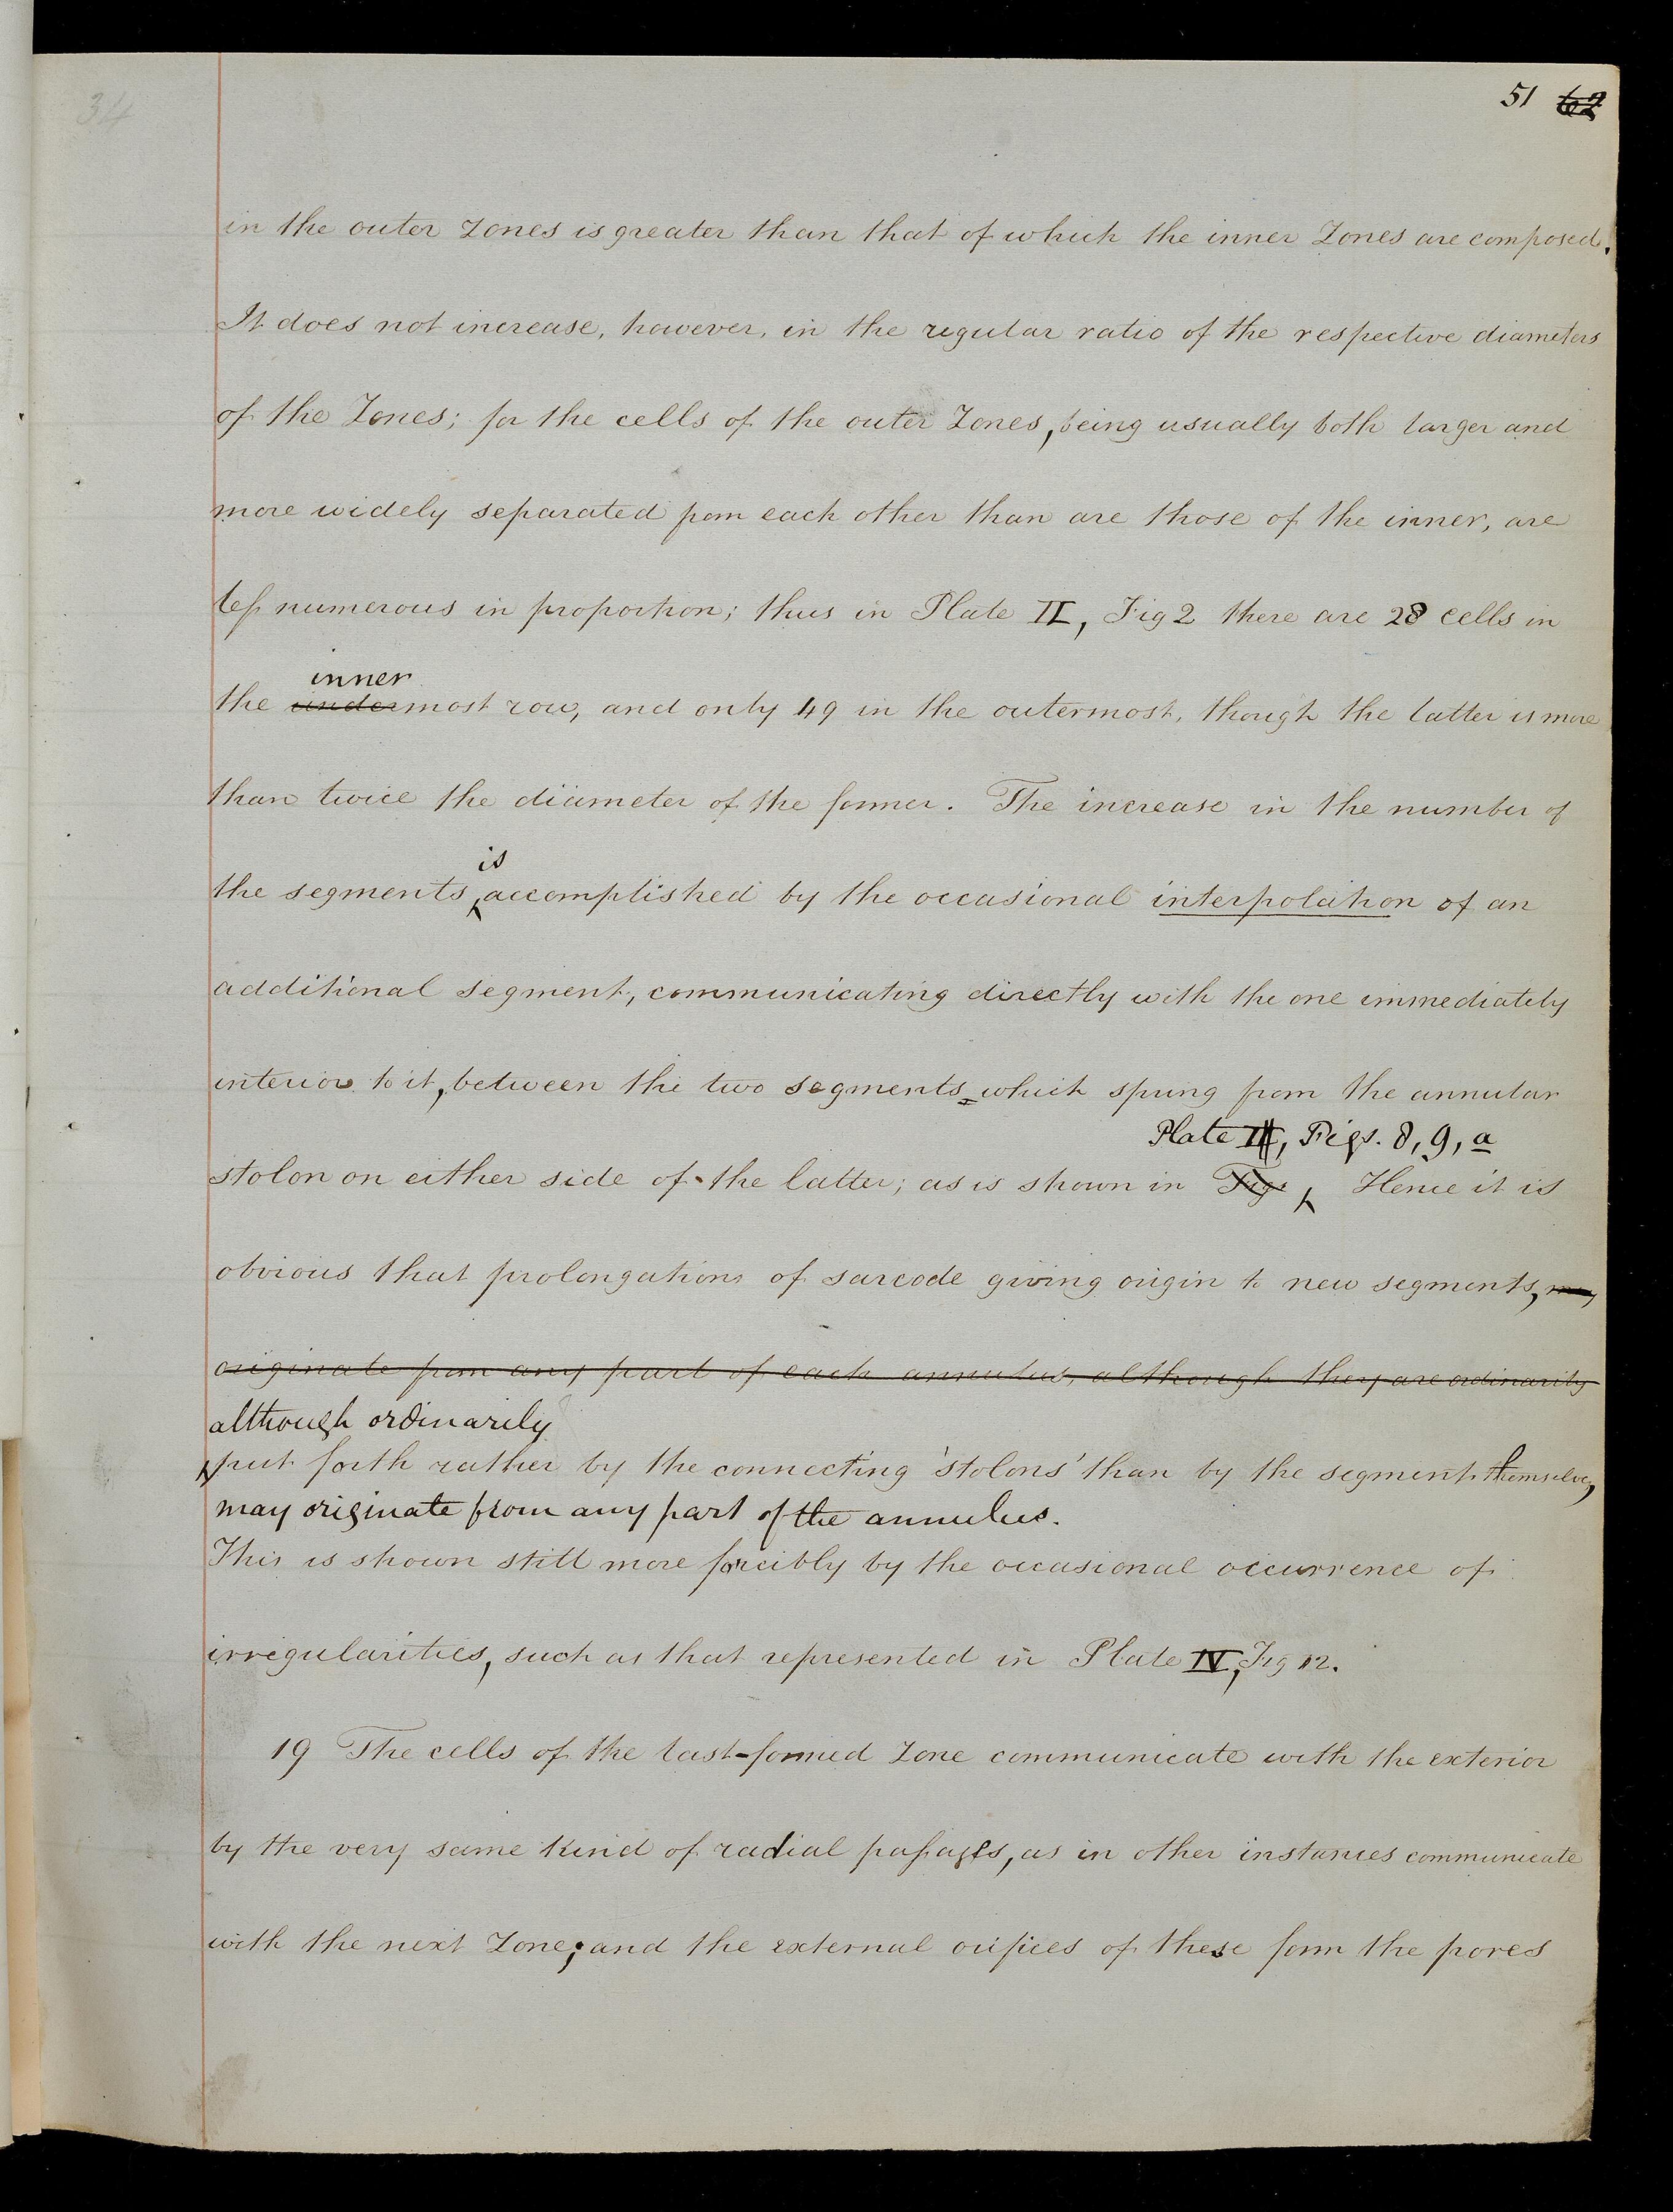 34
51 62
in the outer Zones is greater than that of which the inner Zones are composed.
It does not increase, however, in the regular ratio of the respective diameters
of the Zones; for the cells of the outer Zones, being usually both larger and
more widely separated from each other than are those of the inner, are
less numerous in proportion; thus in Plate II, Fig 2 there are 28 cells in
inner
the undermost row, and only 49 in the outermost, though the latter is more
than twice the diameter of the former. The increase in the number of
is
the segments accomplished by the occasional interpolation of an
additional segment, communicating directly with the one immediately
interior to it, between the two segments which spring from the annular
Plate II, Figs. 8, 9, a
stolon on either side of the latter; as is shown in Figs Hence it is
obvious that prolongations of sarcode giving origin to new segments, may
originate from any part of each annulus, although they are ordinarily
although ordinarily
put forth rather by the connecting 'stolons' than by the segments themselves,
may originate from any part of the annulus.
This is shown still more forcibly by the occasional occurrence of
irregularities, such as that represented in Plate IV, Fig 12.
19 The cells of the last-formed Zone communicate with the exterior
by the very same kind of radial passages, as in other instances communicate
with the next Zone; and the external orifices of these form the pores